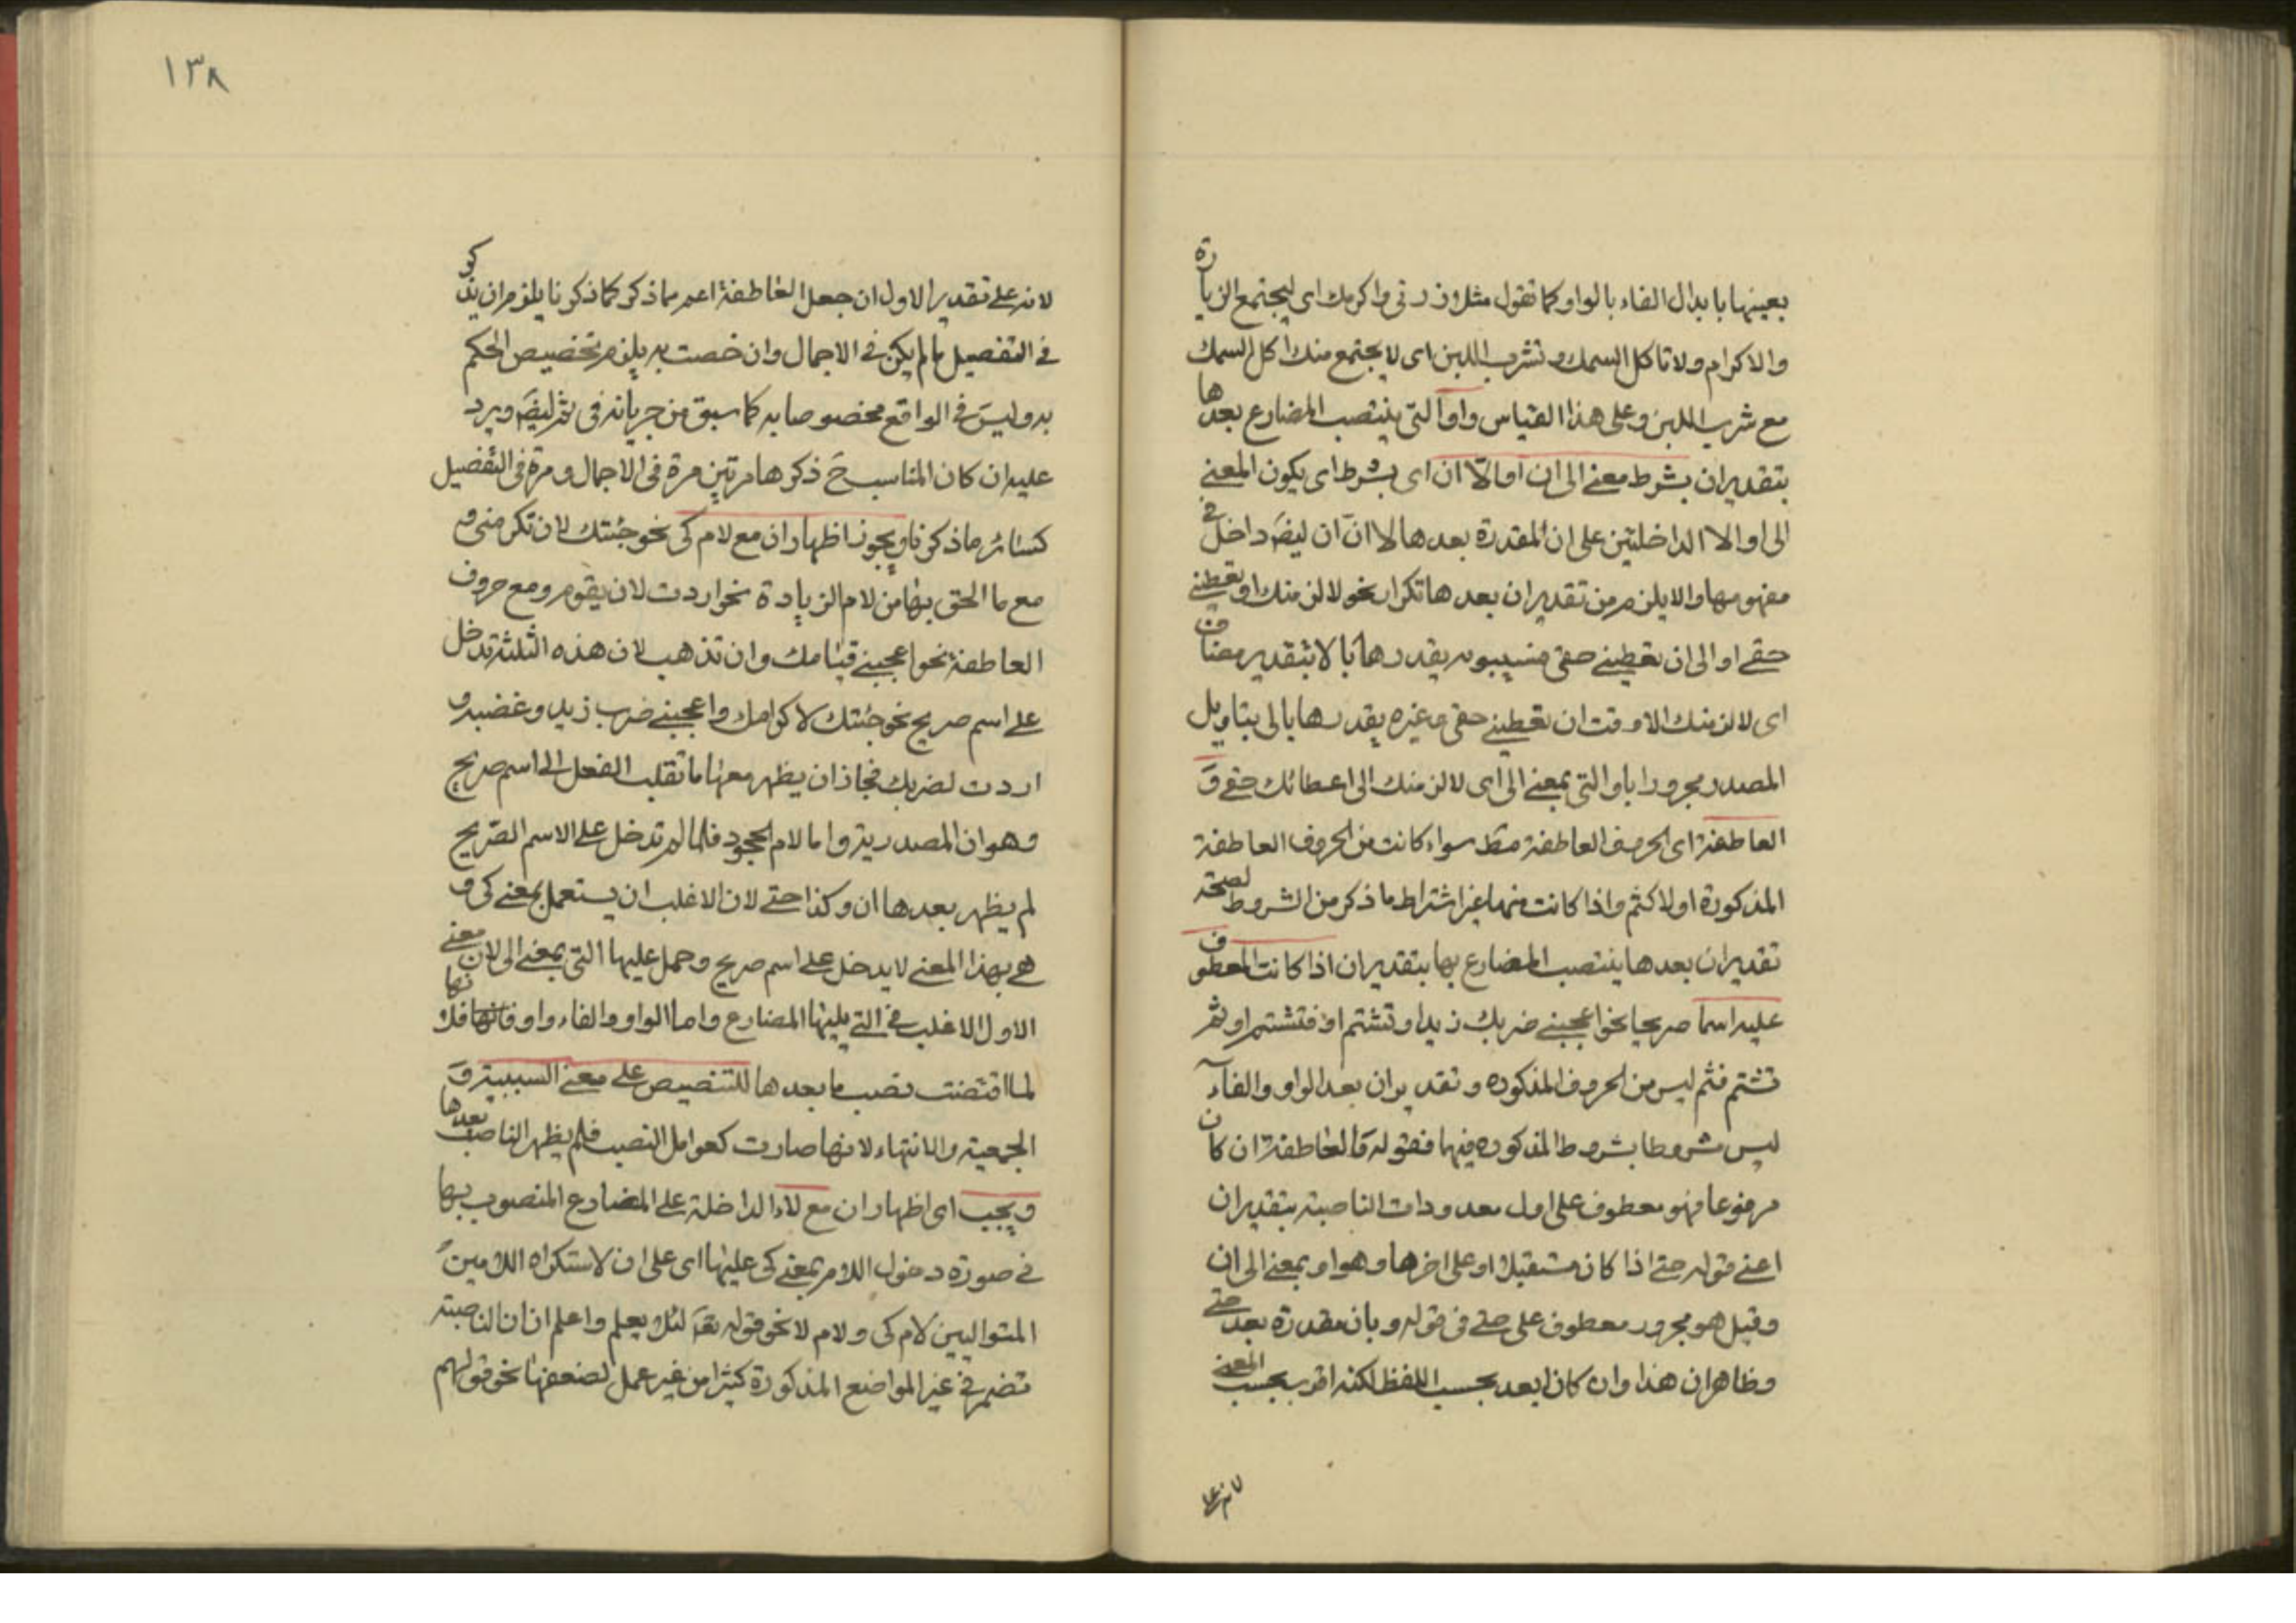 بعينها بابدال الفاء بالواو كما تقول مثل زرني واكرمك اى ليجتمع الزيارة
والاكرام ولا تاكل السمك وتشرب اللبن اى لا يجتمع منك اكل السمك
مع شرب اللبن وعلى هذا القياس واو التى ينتصب المضارع بعدها
بتقدير ان بشرط معنى الى ان او الا ان اى بشرط اى يكون المعنى
الى او الا الداخلتين على ان المقدرة بعدها لا ان ان ايضَ داخل فى
مفهومها والا يلزم من تقدير ان بعدها تكرار نحو لالزمنك او تعطينى
حقى او الى ان تعطينى حقى فسيبويه يقدرها بالا بتقدير مضاف
اى لالزمنك الا وقت ان تعطينى حقى وغيره يقدرها بالى بتاويل
المصدر مجرورا باو التى بمعنى الى اى لالزمنك الى اعطائك حقى وَ
العاطفة اى الحروف العاطفة مطَ سواء كانت من الحروف العاطفة
المذكورة اولا كثم واذا كانت منها غير اشتراط ما ذكر من الشروط لصحة
تقدير ان بعدها ينتصب المضارع بها بتقدير ان اذا كانت المعطوف
عليه اسما صريحا نحو اعجبنى ضربك زيدا وتشتم او فتشتم او ثم
تشتم فثم ليس من الحروف المذكوره وتقدير ان بعد الواو والفاء
ليس مشروطا بشروط المذكوره فيها فقوله والعاطفة ان كان
مرفوعا فهو معطوف على اول معدودات الناصبة بتقدير ان
اعنى قوله حتى اذا كان مستقبلا او على اخرها وهو او بمعنى الى ان
وقيل هو مجرور معطوف على حتى فى قوله وبان مقدرة بعد حتى
وظاهر ان هذا وان كان ابعد بحسب اللفظ لكنه اقرب بحسب المعنى
لانه على
١٣٨
لانه على تقدير الاول ان جعل العاطفة اعم مما ذكر كما ذكرنا يلزم ان يذكر
فى التفصيل ما لم يكن فى الاجمال وان خصت به يلزم تخصيص الحكم
به وليسَ فى الواقع مخصوصا به كما سبق من جريانه فى ثم ايضَ ويرد
عليه ان كان المناسب حَ ذكرها مرتين مرة فى الاجمال ومرة فى التفصيل
كسائر ما ذكرنا ويجوز اظهار ان مع لام كى نحو جئتك لان تكرمنى و
مع ما الحق بها من لام الزيادة نحو اردت لان يقوم ومع حروف
العاطفة نحو اعجبنى قيامك وان تذهب لان هذه الثلثة تدخل
على اسم صريح نحو جئتك لاكرامك واعجبنى ضرب زيد وغضبه و
اردت لضربك فجاز ان يظهر معها ما تقلب الفعل الى اسم صريح
وهو ان المصدرية واما لام الجحود فلما لم تدخل على الاسم الصريح
لم يظهر بعدها ان وكذا حتى لان الاغلب ان يستعمل بمعنى كى و
هى بهذا المعنى لا يدخل على اسم صريح وحمل عليها التى بمعنى الى لان معنى
الاول الاغلب فى التى يليها المضارع واما الواو والفاء واو فانها فلانها
لما اقتضت نصب ما بعدها للتنصيص على معنى السببية وَ
الجمعية والانتهاء لانها صارت كعوامل النصب فلم يظهر الناصب بعدها
ويجب اى اظهار ان مع لاء الداخلة على المضارع المنصوب بها
فى صورة دخول اللام بمعنى كى عليها اى على ان لاستكراه اللامين
المتواليين لام كى ولام لا نحو قوله تعَ لئلا يعلم واعلم ان ان الناصبة
تضمر فى غير المواضع المذكورة كثيرا من غير عمل لضعفها نحو قولهم